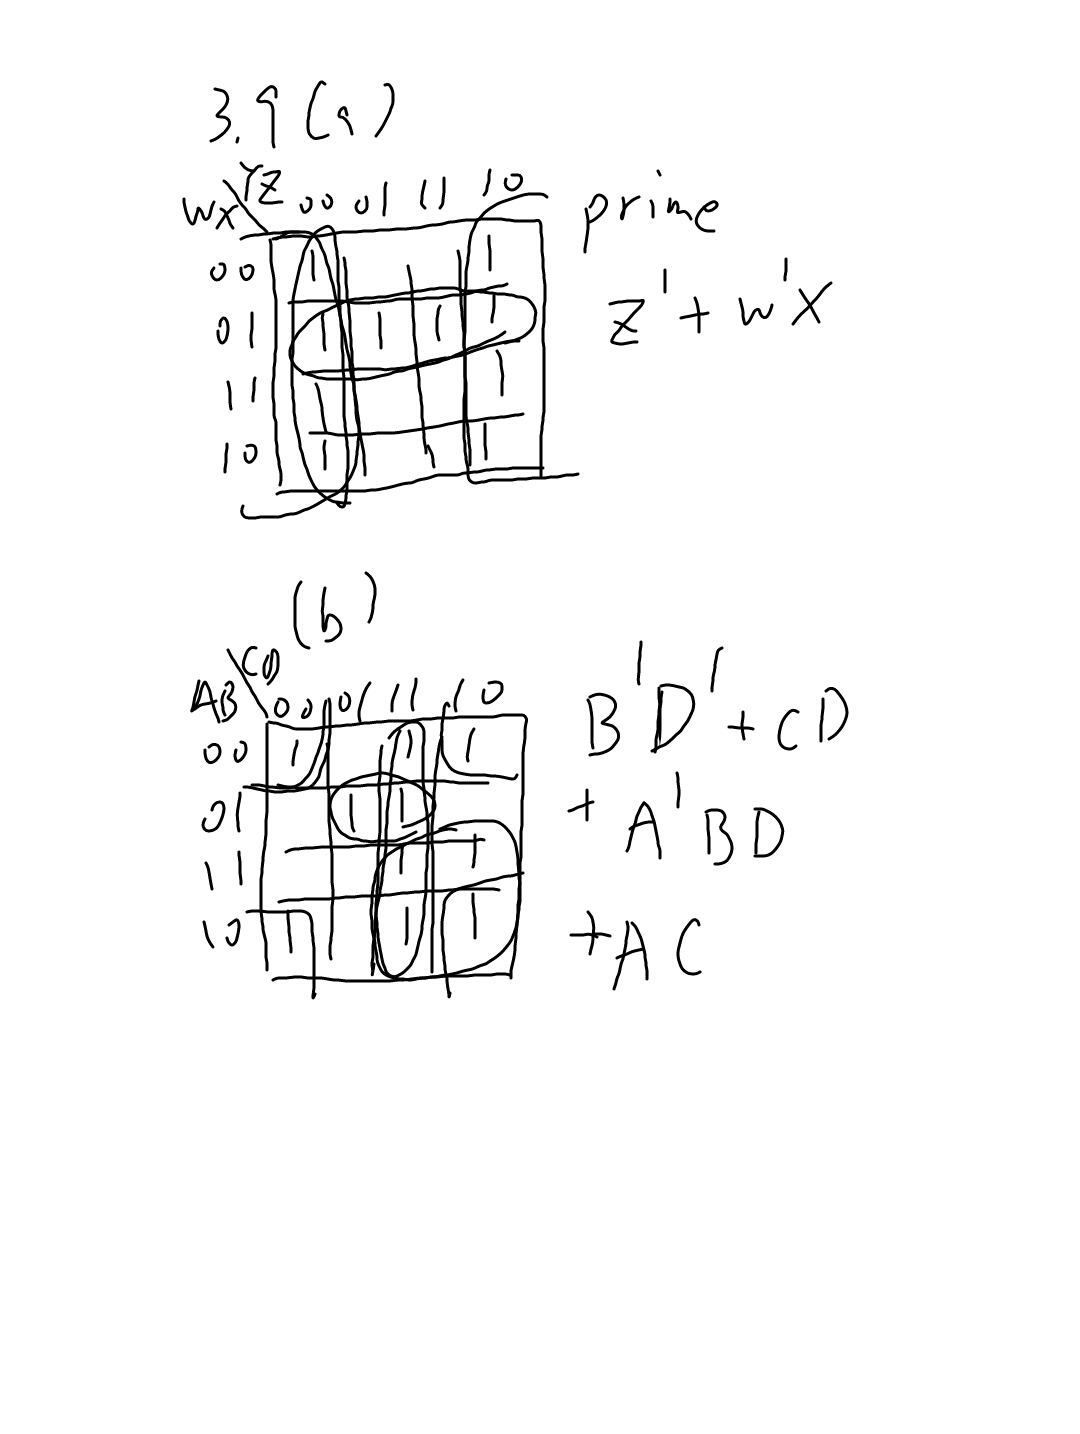 3.9 (a)
WX\YZ 00 01 11 10
00 1 1
01 1 1 1 1
11 1 1
10 1 1
prime
Z' + W'X
(b)
AB\CD 00 01 11 10
00 1 1 1
01 1 1
11 1 1
10 1 1 1
B'D' + CD
+ A'BD
+ AC